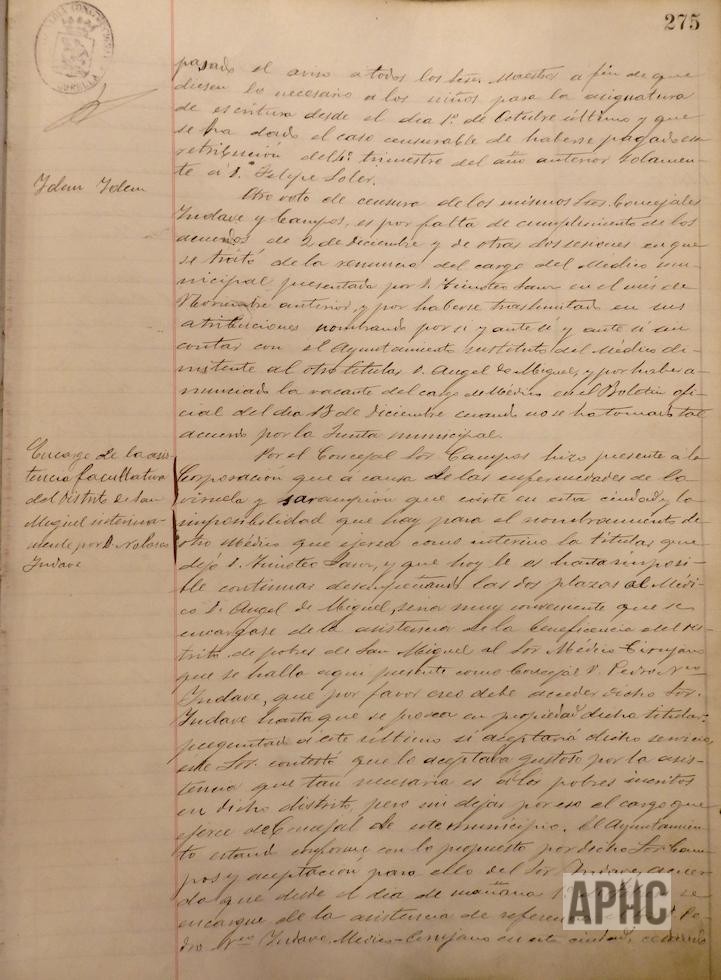 275
CORELLA
pasado el aviso a todos los Sres. Maestros a fin de que
diesen lo necesario a los niños para la asignatura
de escritura desde el dia 1º de Octubre último y que
se ha dado el caso censurable de haberse pagado esa
retribución del 4º trimestre del año anterior solamen-
te á D. Felipe Soler.
Idem Idem
Otro voto de censura de los mismos Sres. Concejales
Yndave y Campos, es por falta de cumplimiento de los
acuerdos de 2 de Diciembre y de otras dos sesiones en que
se trató de la renuncia del cargo del Médico mu-
nicipal presentada por D. Timoteo en el mes de
Noviembre anterior, y por haberse trasimitado en sus
atribuciones nombrando por si y ante si y ante si sin
contar con el Ayuntamiento sustituto del Médico di-
mitente al otro titular D. Angel de Miguel, y por haber a-
nunciado la vacante del cargo de Médico en el Boletin ofi-
cial del dia 13 de Diciembre cuando no se ha tomado tal
acuerdo por la Junta municipal.
Encargo de la asis-
tencia facultativa
del Distrito de San
Miguel interina-
mente por D. Nolasco
Yndave
Por el Concejal Sor. Campos hizo presente á la
Corporación que á causa de las enfermedades de la
viruela y sarampión que existe en esta ciudad y la
imposibilidad que hay para el nombramiento de
otro Médico que ejerza como interino la titular que
dejó D. Timoteo, y que hoy le es hasta imposi-
ble continuar desempeñando las dos plazas al Médi-
co D. Angel de Miguel, seria muy conveniente que se
encargase de la asistencia de la Beneficencia del dis-
trito de pobres de San Miguel al Sor. Médico Cirujano
que se halla aqui presente como Concejal D. Pedro Nco
Yndave, que por favor cree debe acceder dicho Sor.
Yndave hasta que se provea en propiedad dicha titular:
preguntado á este último si aceptaria dicho servicio,
este Sor. contestó que lo aceptava gustoso por la asis-
tencia que tan necesaria es á los pobres inscritos
en dicho distrito, pero sin dejar por eso el cargo que
ejerce de Concejal de este municipio. El Ayuntamien-
to estando conforme con lo propuesto por dicho Sor. Cam-
pos y aceptación para ello del Sor. Yndave, acuer-
da que desde el dia de mañana 1º se
encargue de la asistencia de referencia D. Pe-
dro Nco Yndave Médico-Cirujano en esta ciudad,
APHC